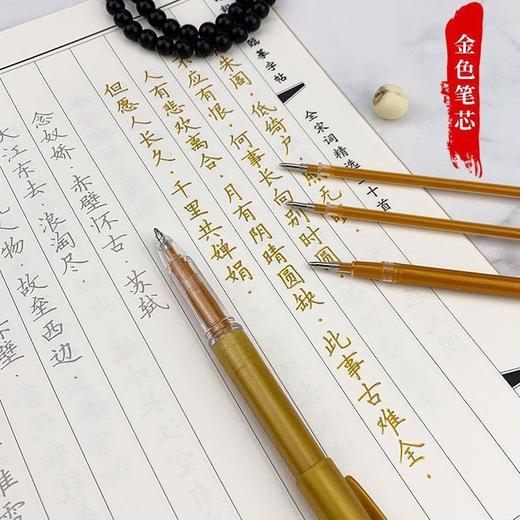 金色笔芯
摹字帖
全宋词精选
十首
朱阁.低绮户.
不应有恨.何事长向别时圆
人有悲欢离合.月有阴晴圆缺.此事古难全.
但愿人长久.千里共婵娟.
念奴娇.赤壁怀古.苏轼
大江东去.浪淘尽.
人物.故垒西边.
壁
雪